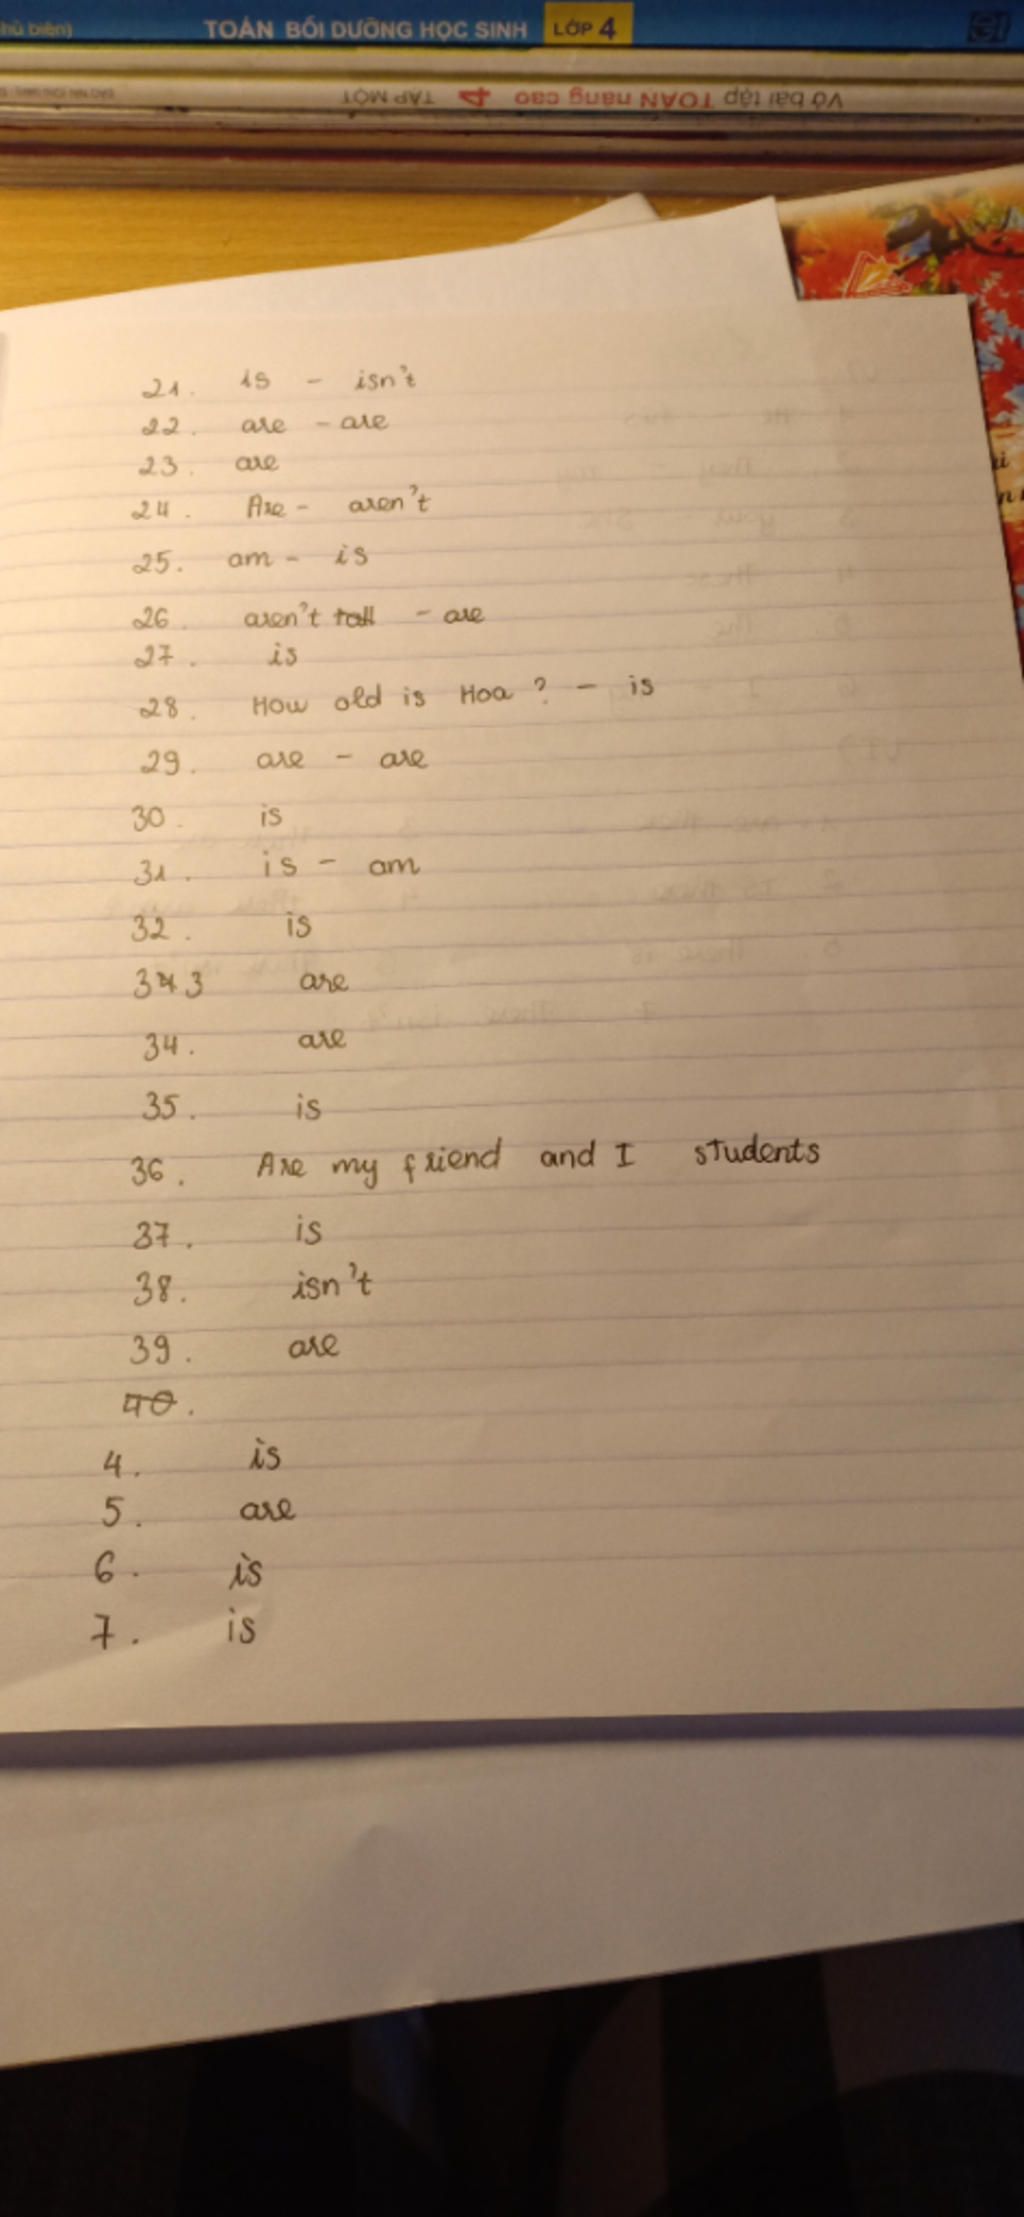 TOÁN BỒI DƯỠNG HỌC SINH LỚP 4
Vở bài tập TOÁN nâng cao 4 TẬP MỘT
21. is - isn't
22. are - are
23. are
24. Are - aren't
25. am - is
26. aren't tall - are
27. is
28. How old is Hoa ? - is
29. are - are
30. is
31. is - am
32. is
343 are
34. are
35. is
36. Are my friend and I students
37. is
38. isn't
39. are
40.
4. is
5. are
6. is
7. is